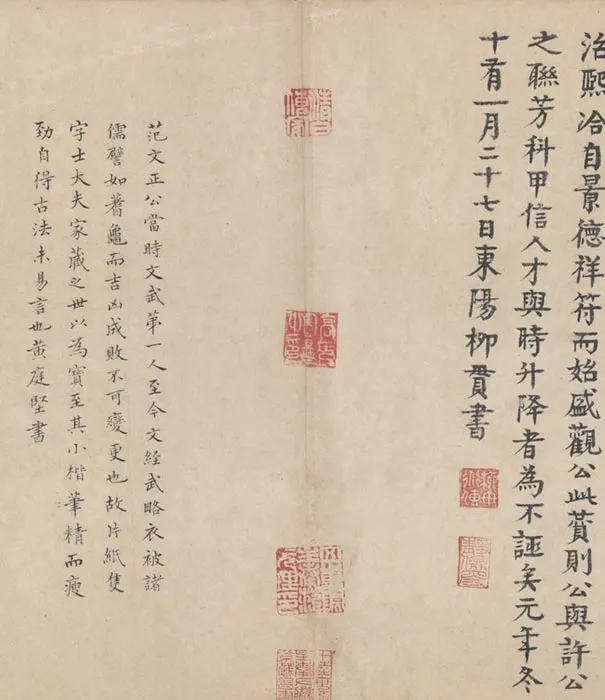 治熙洽自景德祥符而始盛觀公此賛則公與許公
之聯芳科甲信人才與時升降者為不誣矣元年冬
十有一月二十七日東陽柳貫書
范文正公當時文武第一人至今文經武略衣被諸
儒譬如蓍龜而吉凶成敗不可變更也故片紙隻
字士大夫家藏之世以為寶至其小楷筆精而瘦
勁自得古法未易言也黃庭堅書